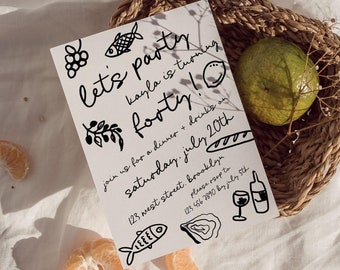 let's party
kayla is turning
forty!
join us for a dinner + drinks on
saturday, july 20th
123 west street, brooklyn
please rsvp to
123 456 7890 by july 5th